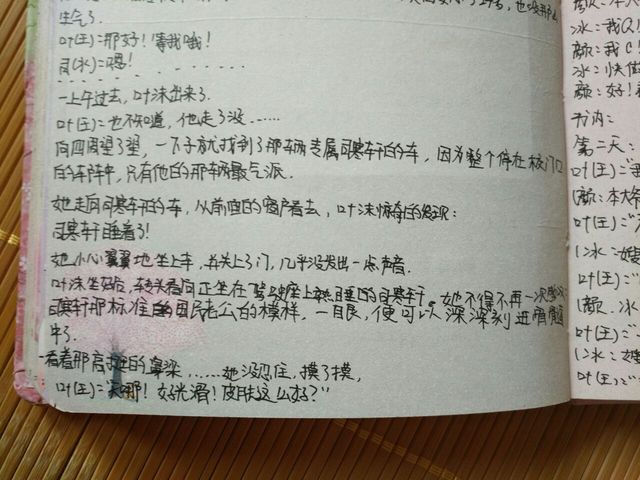 生气了.
叶(王)=那好！等我哦！
司(水)=嗯！
一上午过去，叶沫出来了.
叶(王)=也不知道，他走了没……
向四周望了望，一下子就找到了那辆专属司寒轩的车，因为整个停在校门口
的车阵中，只有他的那辆最气派.
她走向司寒轩的车，从前面的窗户看去，叶沫惊奇的发现：
司寒轩睡着了!
她小心翼翼地坐上车，并关上了门，几乎没发出一点声音.
叶沫坐好后，转头看向正坐在驾驶座上熟睡的司寒轩。她不得不再一次感
司寒轩那标准的国民老公的模样，一眼，便可以深深刻进脑
中了.
看着那高挺的鼻梁……她没忍住，摸了摸，
叶(王)="天哪！好光滑！皮肤这么好？"
颜：本
冰：我
颜：我
冰：快
颜：好！
书内：
第二天：
叶(王)：
颜：本大
叶(王)：
冰：嫂
叶(王)：
颜.冰
叶(王)：
冰：嫂
叶(王)：